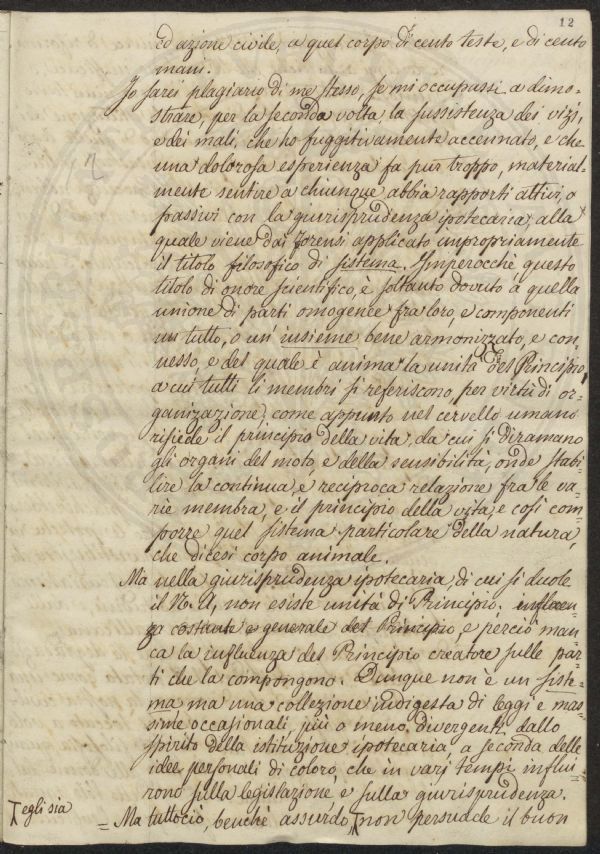 12
ed azione civile, a quel corpo di cento teste, e di cento
mani.
Io sarei plagiario di me stesso, se mi occupassi a dimo-
strare, per la seconda volta, la sussistenza dei vizj,
e dei mali, che ho fuggitivamente accennato, e che
una dolorosa esperienza fa pur troppo, material-
mente sentire a chiunque abbia rapporti attivi, o
passivi con la giurisprudenza ipotecaria, alla
quale viene dai Forensi applicato impropriamente
il titolo filosofico di sistema. Imperocchè questo
titolo di onore scientifico, è soltanto dovuto a quella
unione di parti omogenee fra loro, e componenti
un tutto, o un' insieme bene armonizzato, e con-
nesso, e del quale è anima la unità del Principio,
a cui tutti li membri si referiscono per virtù di or-
ganizazione, come appunto nel cervello umano
risiede il principio della vita, da cui si diramano
gli organi del moto, e della sensibilità, onde stabi-
lire la continua, e reciproca relazione fra le va-
rie membra, e il principio della vita, e così com-
porre quel sistema particolare della natura,
che dicesi corpo animale.
Ma nella giurisprudenza ipotecaria, di cui si duole
il N. A, non esiste unità di Principio, influen-
za costante e generale del Principio, e perciò man-
ca la influenza del Principio creatore sulle par-
ti che la compongono. Dunque non è un siste-
ma, ma una collezione indigesta di leggi e mas-
sime occasionali, più o meno divergenti dallo
spirito della istituzione ipotecaria, a seconda delle
idee personali di coloro, che in varj tempi influi-
rono sulla legislazione e sulla giurisprudenza.
egli sia
= Ma tuttociò, benchè assurdo, non persuade il buon